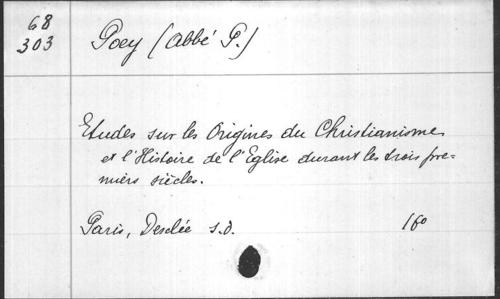 68
303
Poey (Abbé P.)
Etudes sur les Origines du Christianisme
et l'Histoire de l'Eglise durant les trois pre-
miers siècles.
Paris, Desclée s.d. 16°